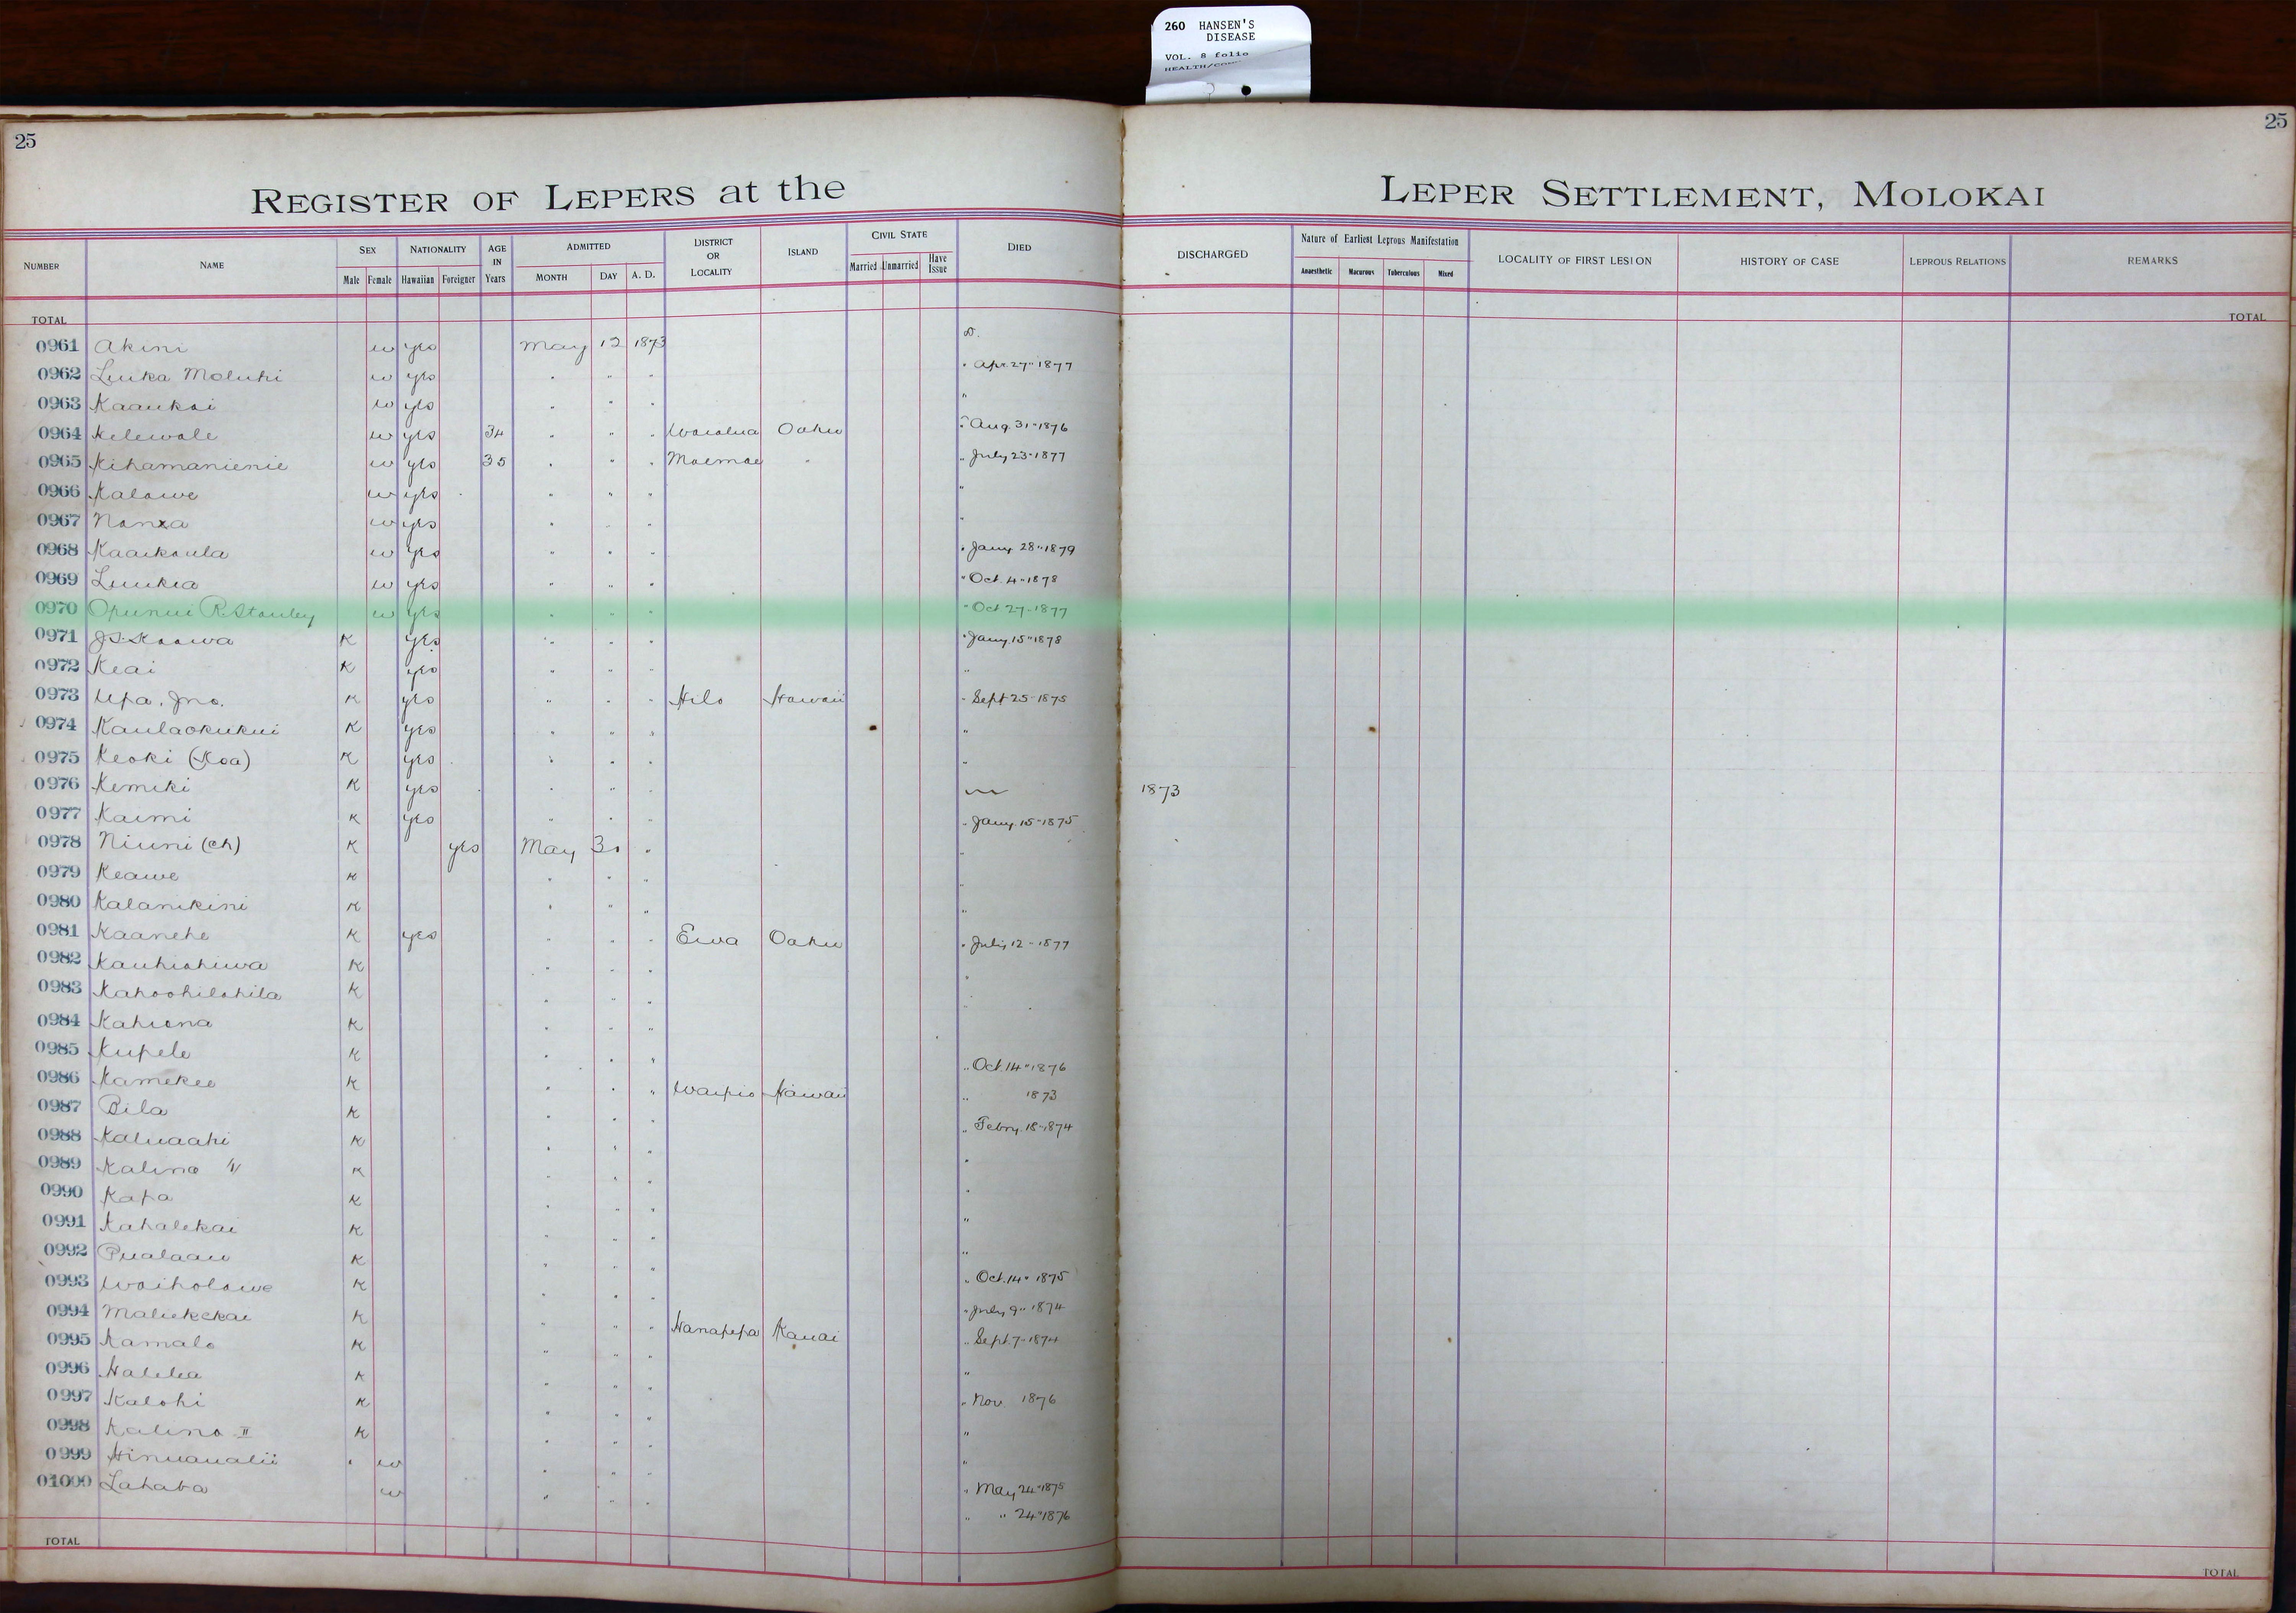 260 HANSEN'S
DISEASE
VOL. 8 folio
25
25
REGISTER OF LEPERS at the LEPER SETTLEMENT, MOLOKAI
NUMBER NAME SEX Male Female NATIONALITY Hawaiian Foreigner AGE IN Years ADMITTED MONTH DAY A. D. DISTRICT OR LOCALITY ISLAND CIVIL STATE Married Unmarried Have Issue DIED DISCHARGED Nature of Earliest Leprous Manifestation Anaesthetic Macurous Tuberculous Mixed LOCALITY OF FIRST LESION HISTORY OF CASE LEPROUS RELATIONS REMARKS
TOTAL TOTAL
0961 Akini w yes May 12 1873 D.
0962 Luika Moluhi w yes " " " " Apr. 27" 1877
0963 Kaaukai w yes " " " "
0964 Kelewale w yes 34 " " " Waialua Oahu " Aug. 31" 1876
0965 Kihamanienie w yes 35 " " " Moemoe " " July 23" 1877
0966 Kalawe w yes " " " "
0967 w yes " " " "
0968 Kaaikaula w yes " " " " Jany 28" 1879
0969 Luukia w yes " " " " Oct. 4" 1878
0970 Opunui R. Stanley w yes " " " " Oct 27" 1877
0971 J. S. Kaawa K yes " " " " Jany. 15" 1878
0972 Keai K yes " " " "
0973 Upa, Jno. K yes " " " Hilo Hawaii " Sept 25" 1875
0974 Kaulaokukui K yes " " " "
0975 Keoki (Koa) K yes " " " "
0976 Kemiki K yes " " " 1873
0977 Kaimi K yes " " " " Jany. 15" 1875
0978 Niuni (ch) K yes May 30 " "
0979 Keawe K " " " "
0980 Kalanikini K " " " "
0981 Kaanehe K yes " " " Ewa Oahu " July 12" 1877
0982 Kauhiahiwa K " " " "
0983 Kahoohilahila K " " " "
0984 Kahiona K " " "
0985 Kupele K " " " " Oct. 14" 1876
0986 Kamekeo K " " " Waipio Hawaii " 1873
0987 Bila K " " " " Febry. 18" 1874
0988 Kaluaahi K " " " "
0989 Kalino K " " " "
0990 Kapa K " " " "
0991 Kahalekai K " " " "
0992 Pualaau K " " " " Oct. 14" 1875
0993 Waiholowe K " " " " July 9" 1874
0994 Maliekekai K " " " Hanapepa Kauai " Sept. 7" 1874
0995 Kamalo K " " " "
0996 Halelea K " " " " Nov. 1876
0997 Kalohi K " " " "
0998 Kalino II K " " " "
0999 Hinuaualii w " " " " May 24" 1875
01000 Lahaba w " " " " " 24" 1876
TOTAL TOTAL